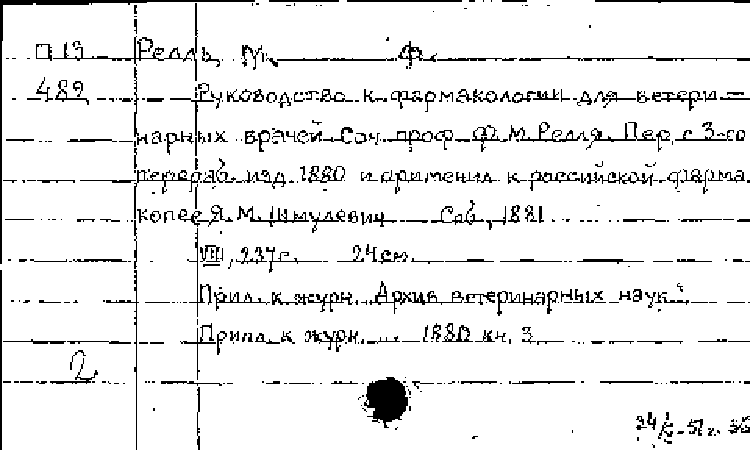 П 13 Релль, М. Ф.
489 Руководство к фармакологии для ветери-
нарных врачей Соч. проф. Ф. М. Релля. Пер. с 3-го
перераб. изд. 1880 и применил к российской фарма
копее Я. М. Шмулевич Спб, 1881
VIII, 237 с. 24 см.
Прил. к журн. "Архив ветеринарных наук".
Прилл. к журн. ... 1880 кн. 3
2